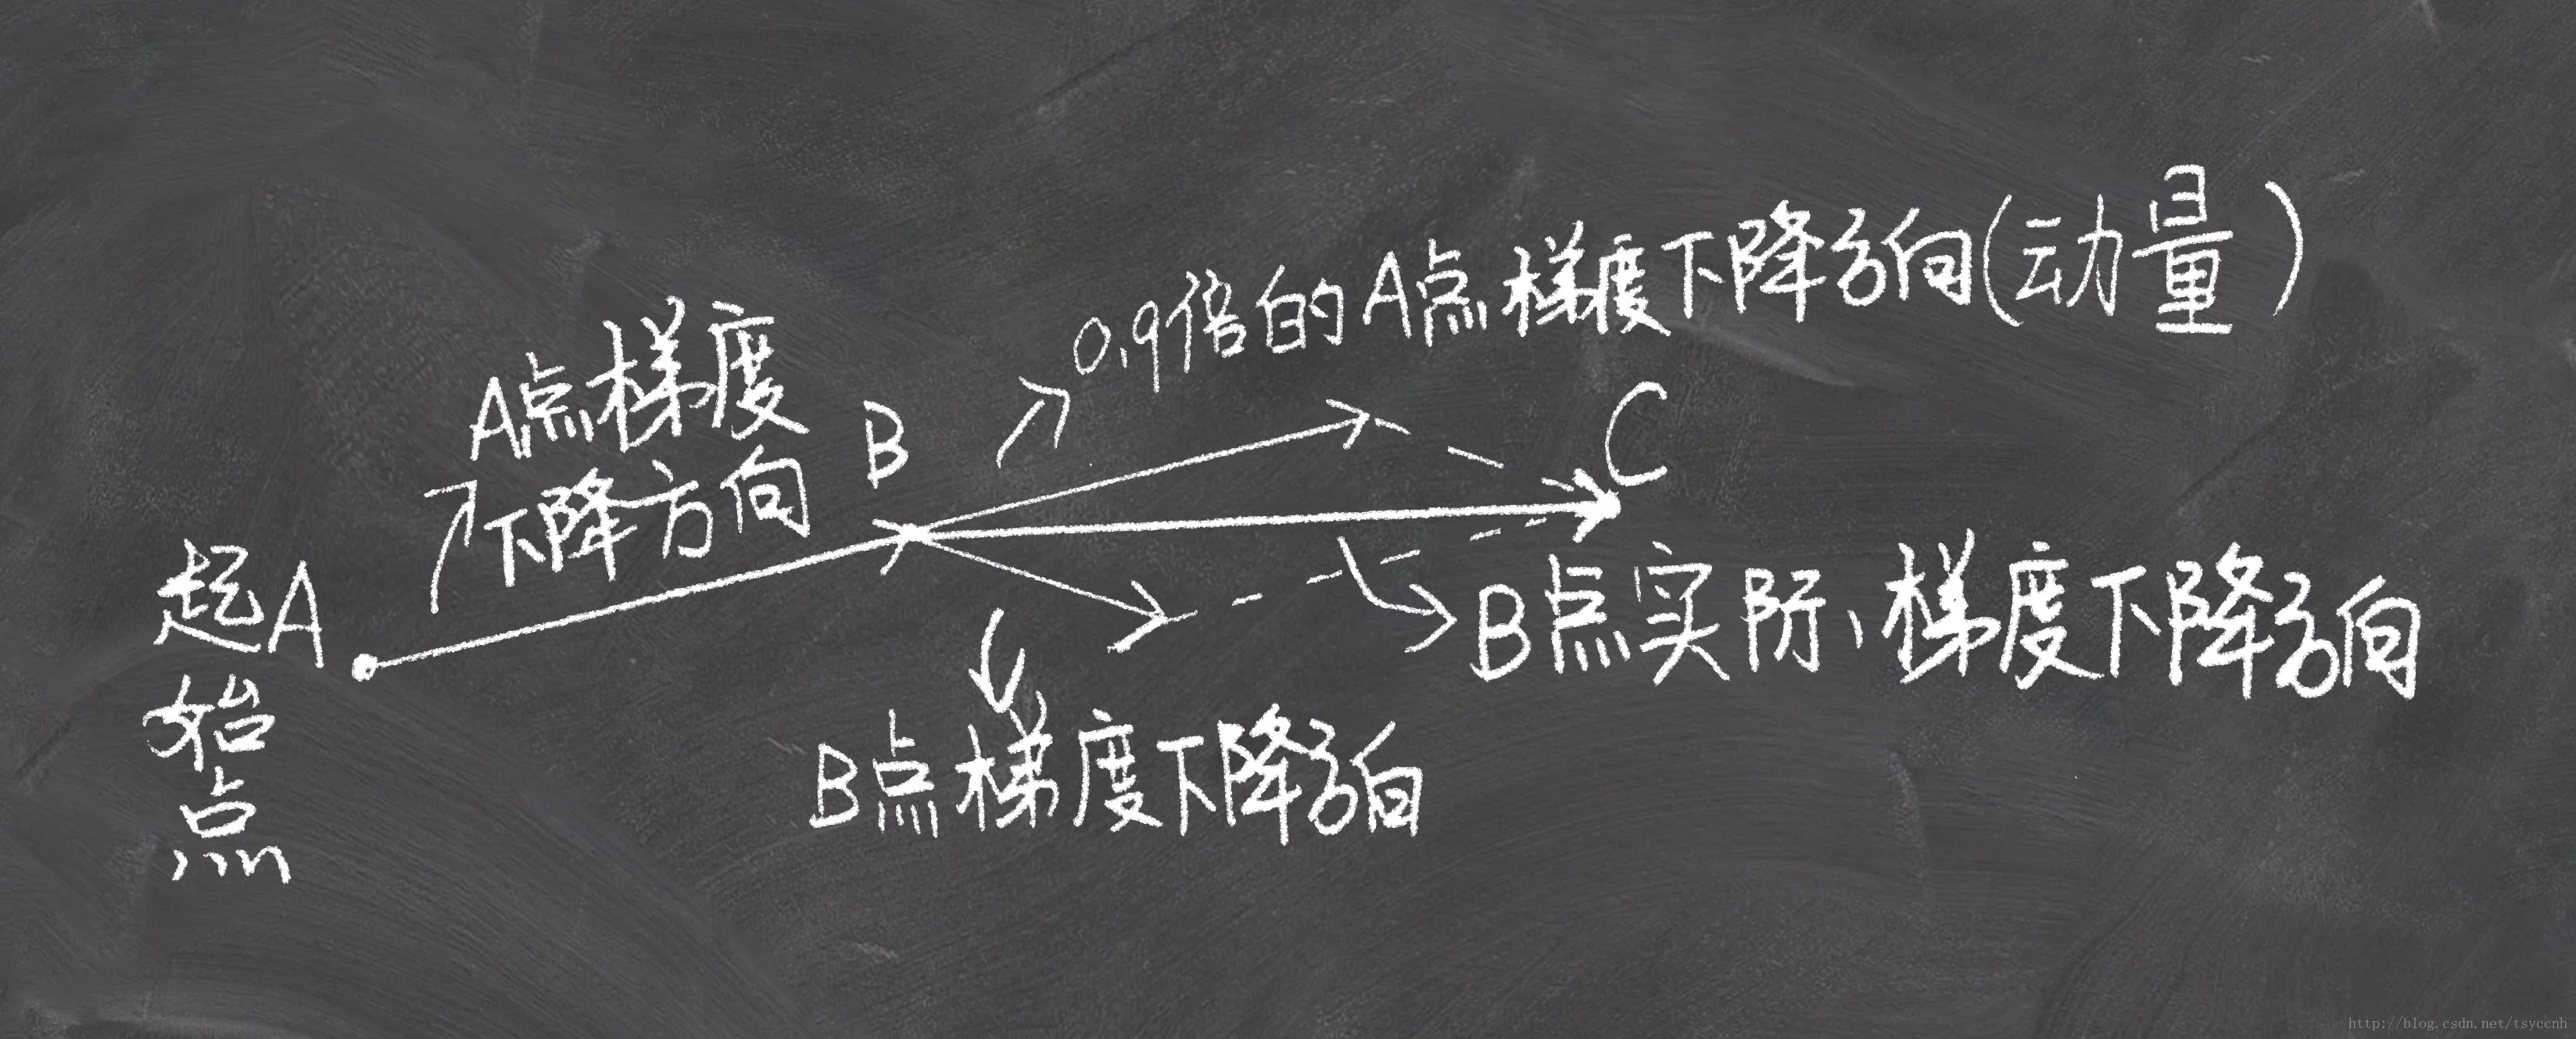 0.9倍的A点梯度下降方向(动量)
A点梯度
下降方向
B
C
起
始
点
A
B点实际、梯度下降方向
B点梯度下降方向
http://blog.csdn.net/tsyccnh